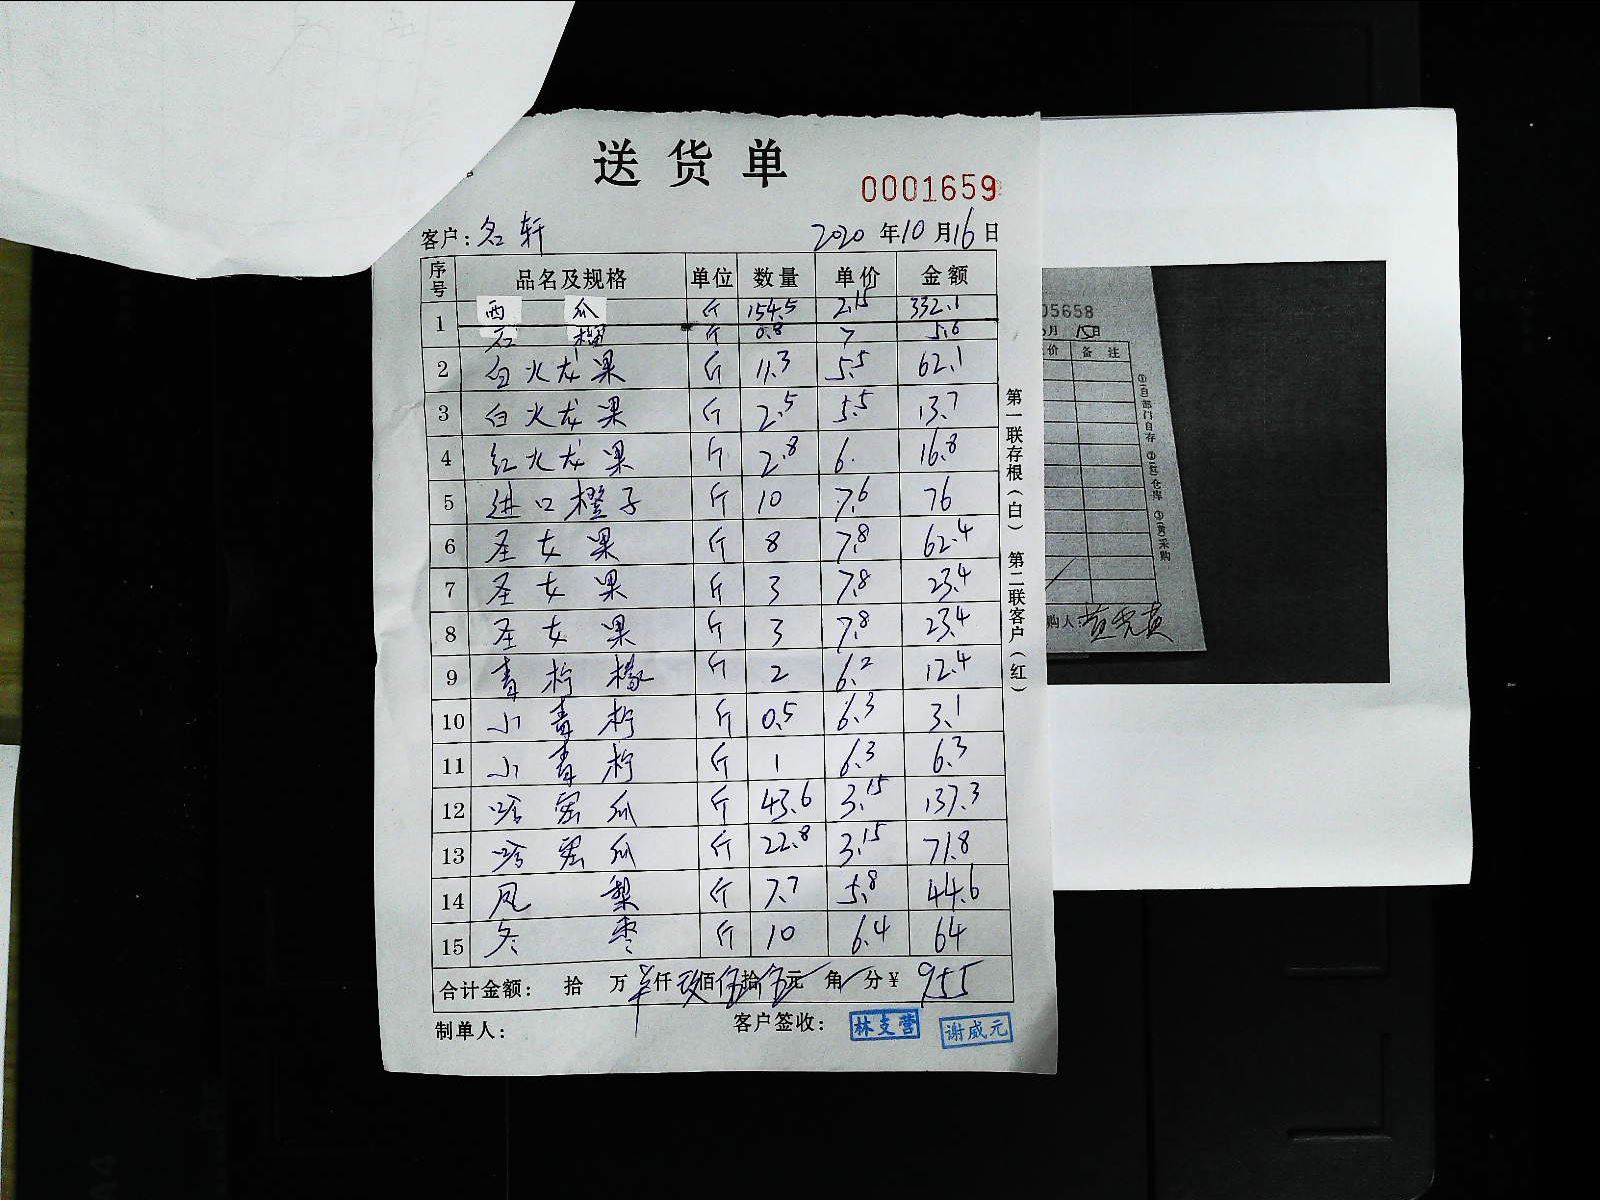 送货单
0001659
客户: 名轩 2020年10月16日
序号 品名及规格 单位 数量 单价 金额
1 西瓜 斤 154.5 2.15 332.1
石榴 斤 0.8 7 5.6
2 白火龙果 斤 11.3 5.5 62.1
3 白火龙果 斤 2.5 5.5 13.7
4 红火龙果 斤 2.8 6. 16.8
5 进口橙子 斤 10 7.6 76
6 圣女果 斤 8 7.8 62.4
7 圣女果 斤 3 7.8 23.4
8 圣女果 斤 3 7.8 23.4
9 青柠檬 斤 2 6.2 12.4
10 小青柠 斤 0.5 6.3 3.1
11 小青柠 斤 1 6.3 6.3
12 哈密瓜 斤 43.6 3.15 137.3
13 哈密瓜 斤 22.8 3.15 71.8
14 凤梨 斤 7.7 5.8 44.6
15 冬枣 斤 10 6.4 64
合计金额: 拾 万 仟玖佰伍拾伍元 角 分 ¥ 955
制单人: 客户签收: 林支营 谢威元
第一联存根(白) 第二联客户(红)
05658
月15日
价 备注
①(白)部门自存 ②(红)仓库 ③(黄)采购
购人: